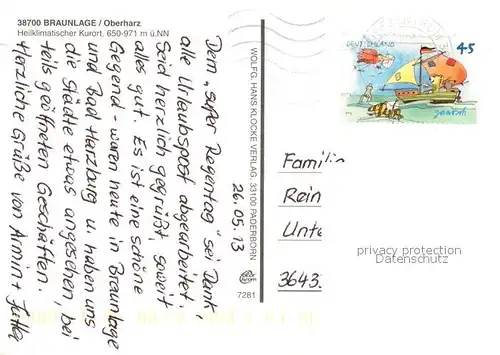 38700 BRAUNLAGE / Oberharz
Heilklimatischer Kurort, 650-971 m ü.NN
Dem „super Regentag" sei Dank
alle Urlaubspost abgearbeitet.
Seid herzlich gegrüßt, soweit
alles gut. Es ist eine schöne
Gegend - waren heute in Braunlage
und Bad Harzburg u. haben uns
die Städte etwas angesehen, bei
teils geöffneten Geschäften.
Herzliche Grüße von Armin + Jutta
26.05.13
WOLFG. HANS KLOCKE VERLAG, 33100 PADERBORN
7281
DEUTSCHLAND
45
Janosch
Familie
Rein
Unte
3643
privacy protection
Datenschutz